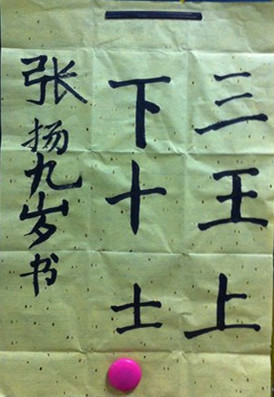 三王上
下十士
张扬九岁书